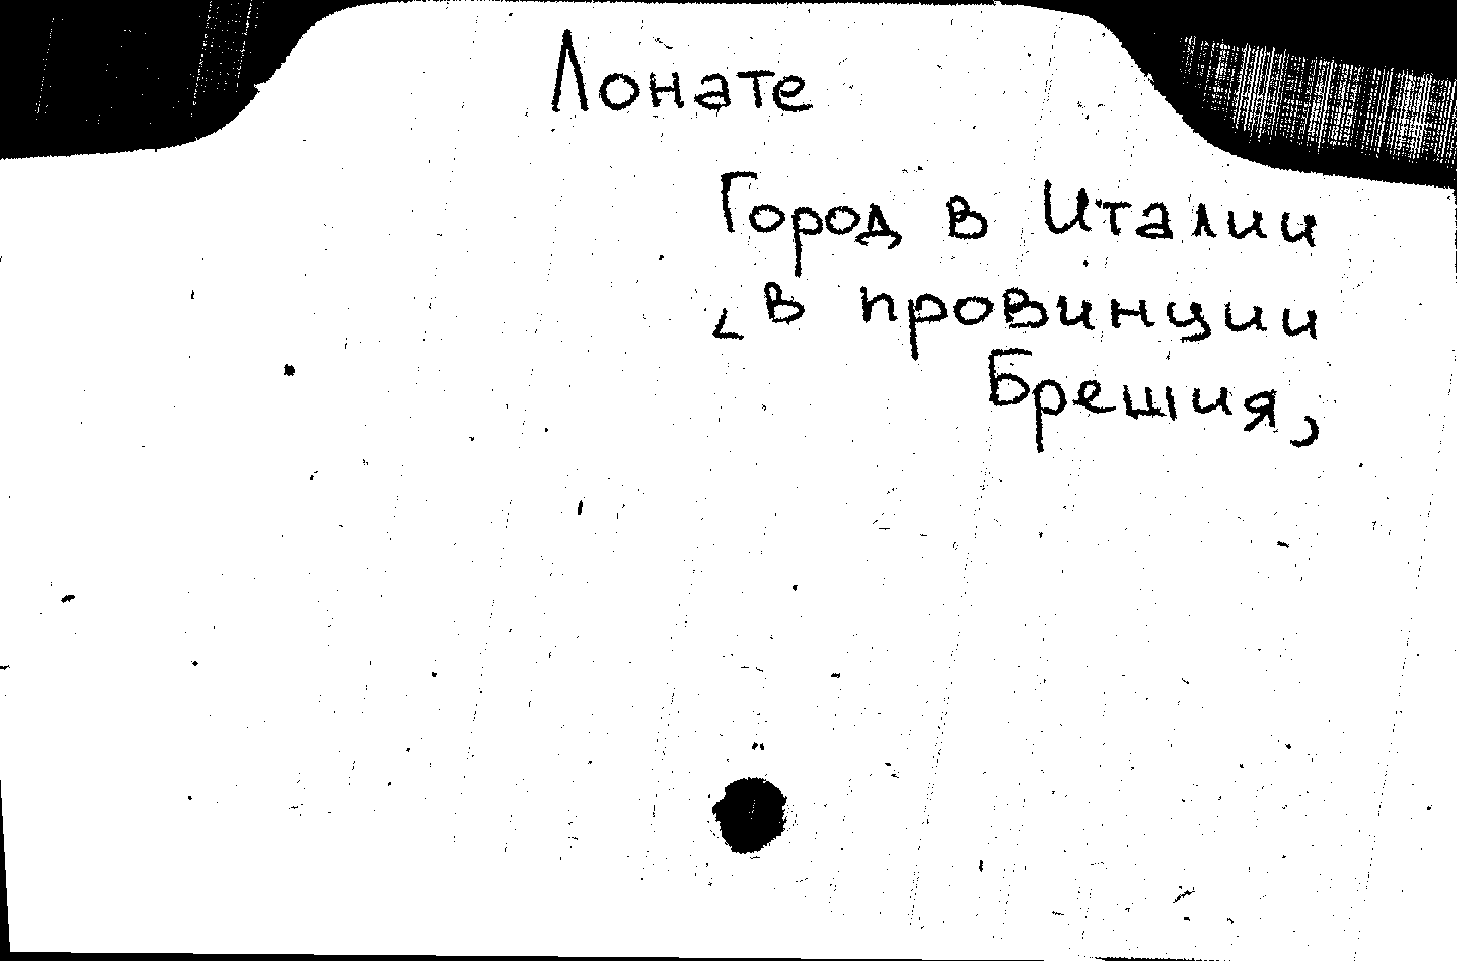 Лонате
Город в Италии
в провинции
Брешия,